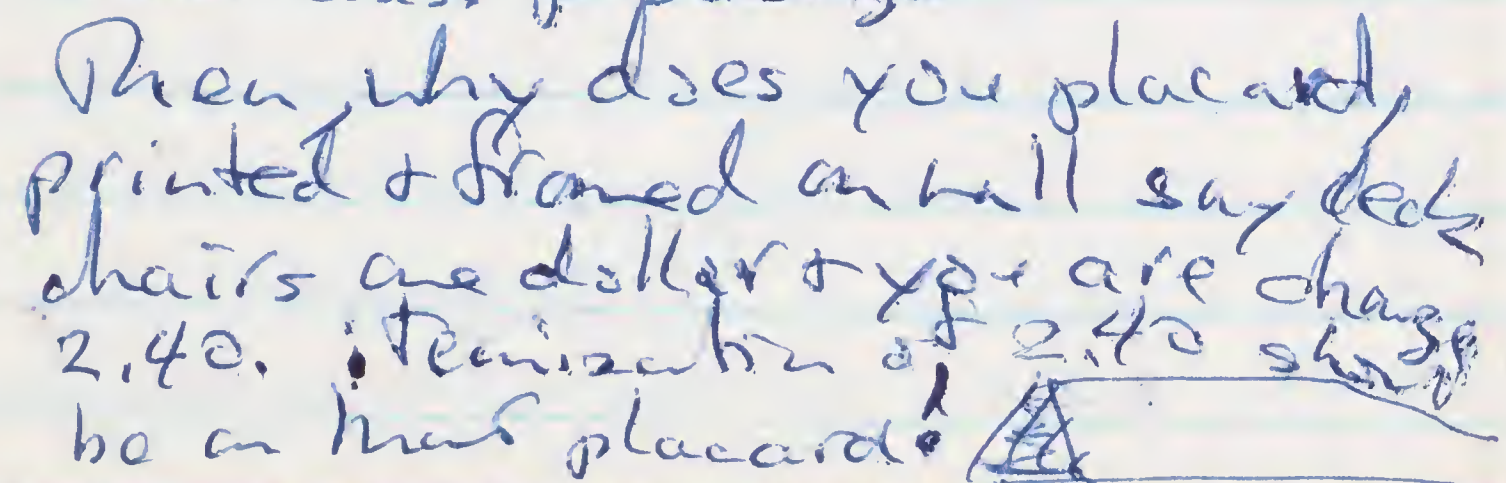 Then, why does you placard,
printed & framed on wall say deck
chairs one dollar & you are charge
2.40. itemization of 2.40 should
be on that placard!